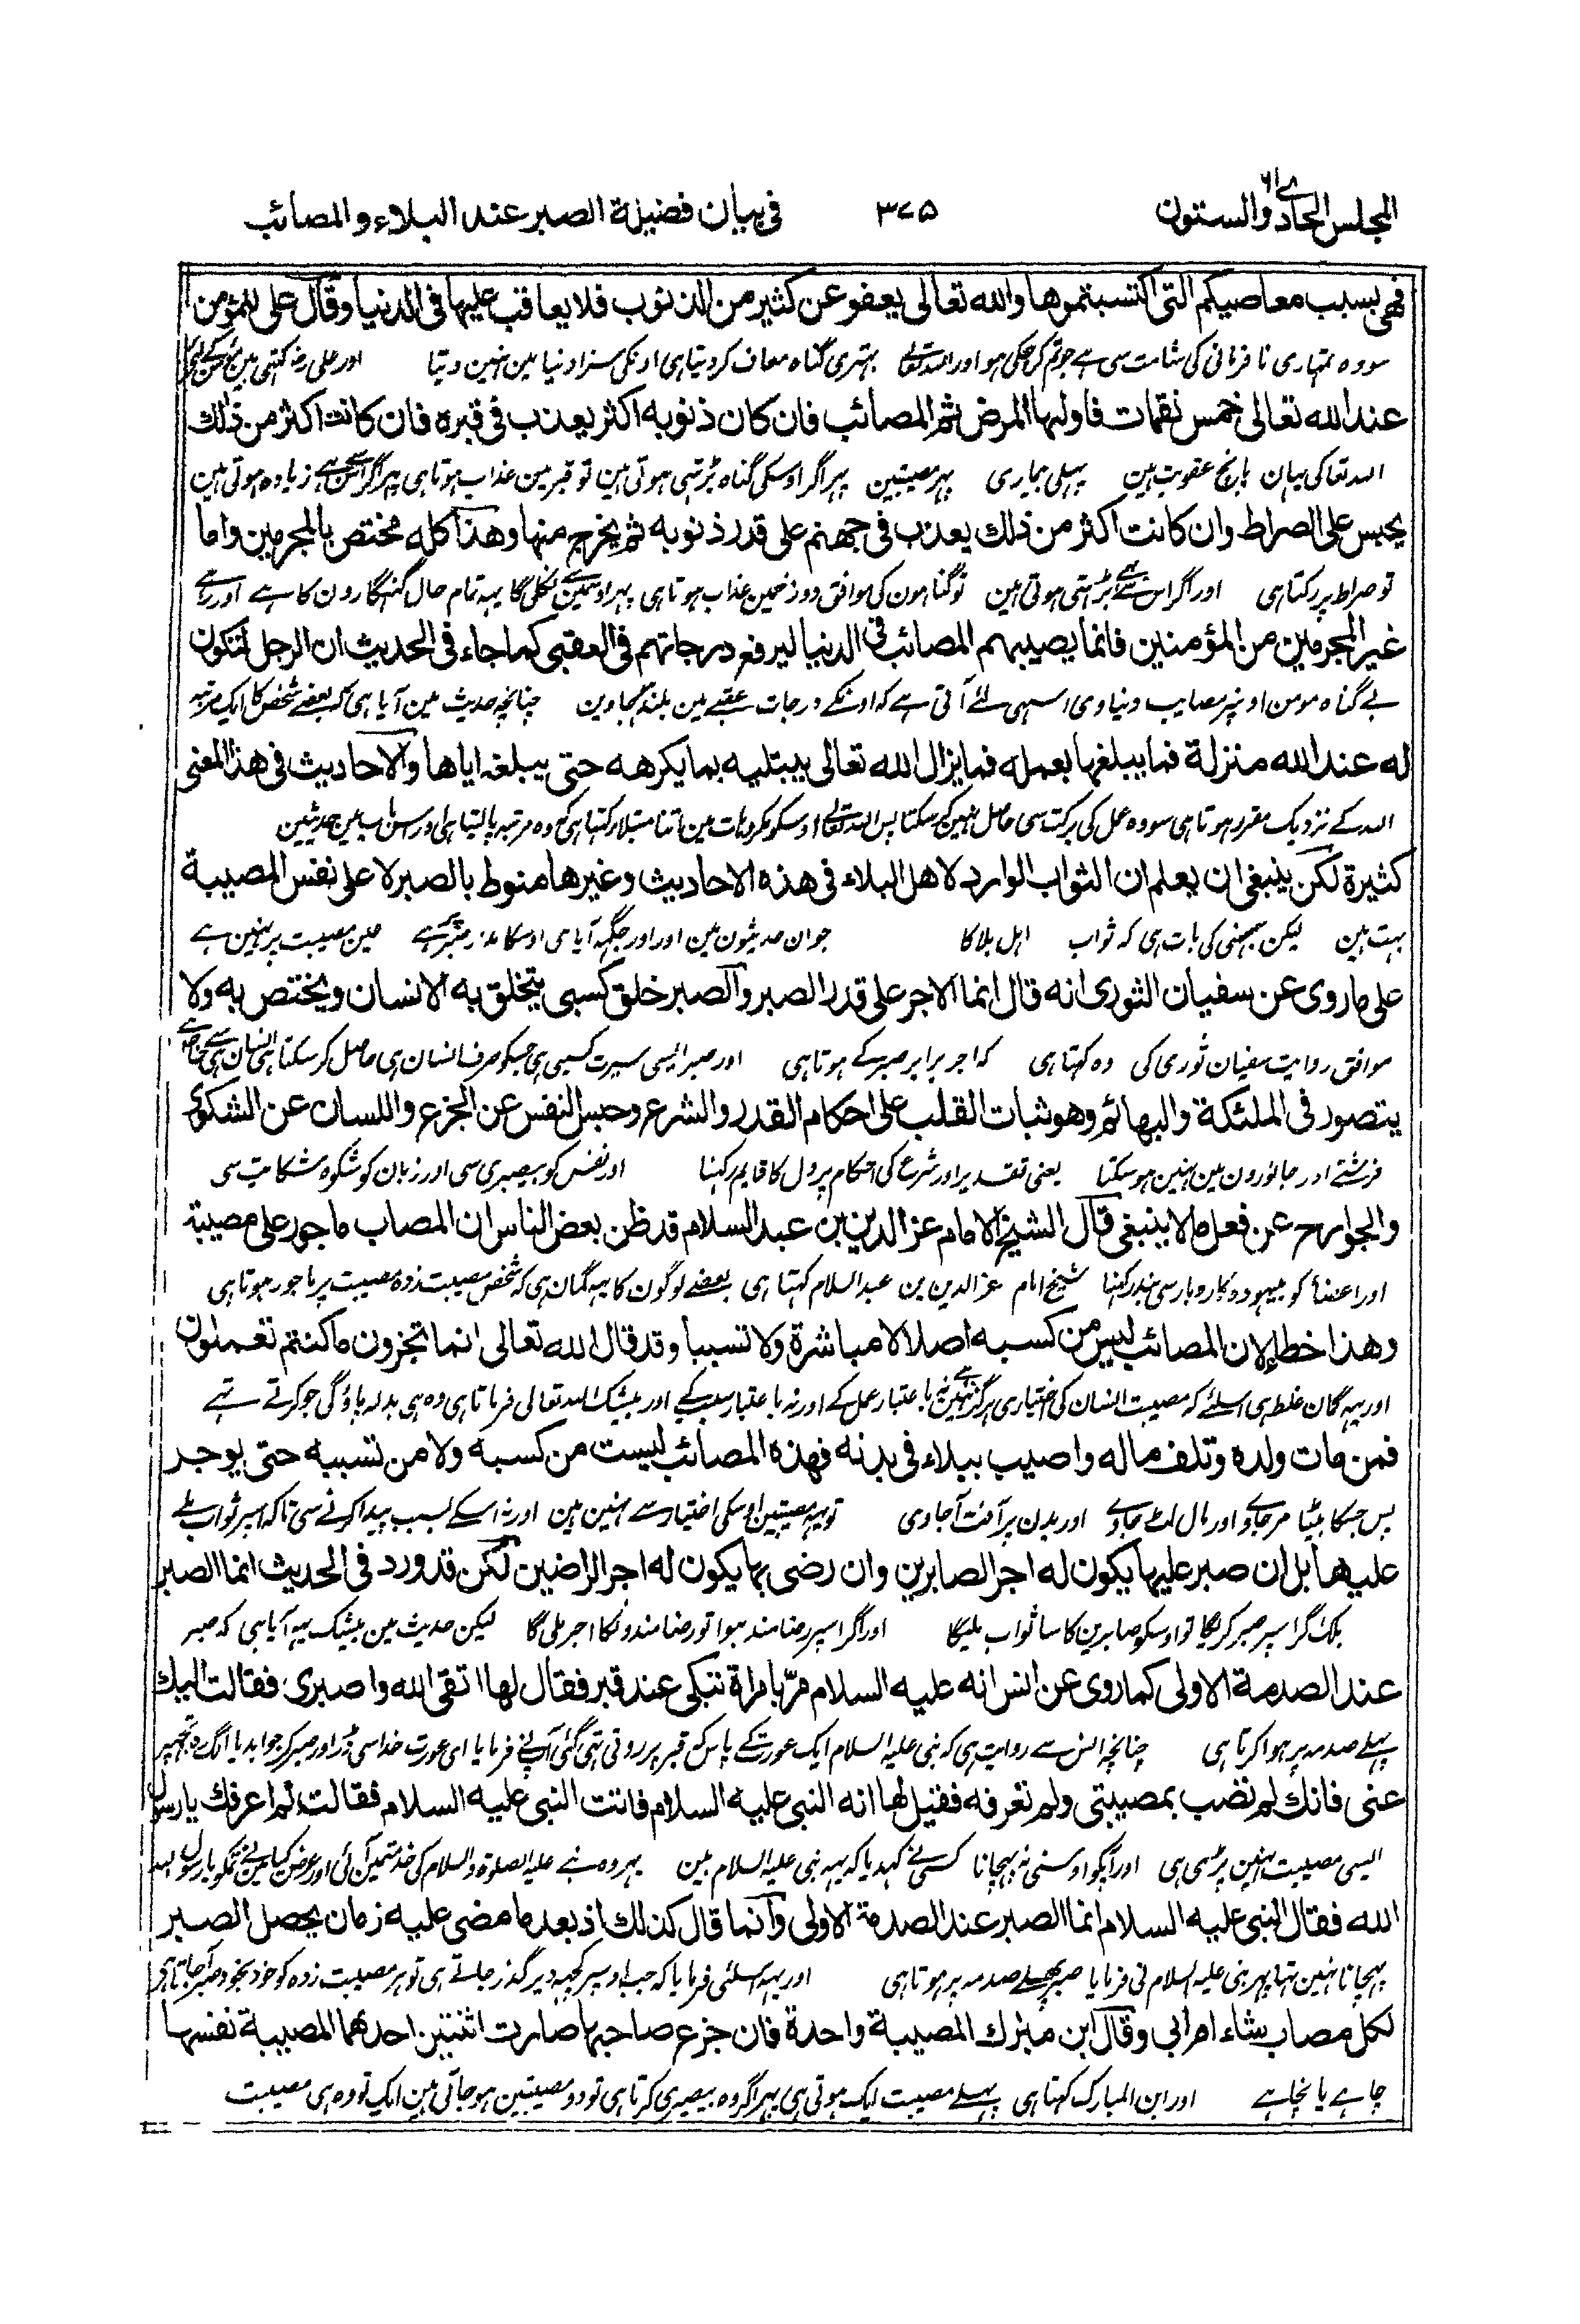 المجلس الحادي والستون ٦١ ٣٧٥ فى بيان فضيلة الصبر عند البلاء والمصائب
فهى بسبب معاصيكم التى اكتسبتموها والله تعالى يعفو عن كثير من الذنوب فلا يعاقب عليها فى الدنيا وقال على للمؤمن
سو وہ تمہاری نا فرمانی کی شامت سی ہے جو تم کر چکی ہو اور اللہ تعالے بہتری گناہ معاف کر دیتا ہی اونکی سزا دنیا مین نہین دیتا اور علی رضہ کہتی ہین مؤمن کے لئے
عند الله تعالى خمس نقمات فاولها المرض ثم المصائب فان كان ذنوبه اكثر يعذب فى قبره فان كانت اكثر من ذلك
اللہ تعا کی یہان پانچ عقوبت ہین پہلی بیماری پہر مصیبتین پہر اگر اوسکی گناہ بڑہتی ہوتی ہین تو قبر مین عذاب ہوتا ہی پہر اگر اس سے زیادہ ہوتی ہین
يحبس على الصراط وان كانت اكثر من ذلك يعذب فى جهنم على قدر ذنوبه ثم يخرج منها وهذا كله مختص بالمجرمين واما
تو صراط پر رکتا ہی اور اگر اس سے بڑہتی ہوتی ہین تو گناہون کی موافق دوزخ مین عذاب ہوتا ہی پہر اوسمین سے نکلی گا یہہ تمام حال گنہگارون کا ہے اور رہے
غير المجرمين من المؤمنين فانما يصيبهم المصائب فى الدنيا ليرفع درجاتهم فى العقبى كما جاء فى الحديث ان الرجل لتكون
بے گناہ مومن اونپر مصایب دنیاوی اسہی لئے آتی ہے کہ اونکے درجات عقبے مین بلند کیجاوین چنانچہ حدیث مین آیا ہی کہ بعضے شخص کا ایک مرتبہ
له عند الله منزلة فما يبلغها بعمله فما يزال الله تعالى يبتليه بما يكرهه حتى يبلغه اياها والاحاديث فى هذا المعنى
اللہ کے نزدیک مقرر ہوتا ہی سو وہ عمل کی برکت سی حاصل نہین کر سکتا پس اللہ تعالے اوسکو مکروہات مین اتنا مبتلا رکہتا ہی کہ وہ مرتبہ پا لیتا ہی اور اس باب مین حدیثین
كثيرة لكن ينبغى ان يعلم ان الثواب الوارد لاهل البلاء فى هذه الاحاديث وغيرها منوط بالصبر لا على نفس المصيبة
بہت ہین لیکن سمجہنی کی بات ہی کہ ثواب اہل بلا کا جو ان حدیثون مین اور اور جگہہ آیا ہی اوسکا مدار صبر پر ہے عین مصیبت پر نہین ہے
على ما روى عن سفيان الثورى انه قال انما الاجر على قدر الصبر والصبر خلق كسبى يتخلق به الانسان ويختص به ولا
موافق روایت سفیان ثوری کی وہ کہتا ہی کہ اجر برابر صبر کے ہوتا ہی اور صبر ایسی سیرت کسبی ہی جسکو صرف انسان ہی حاصل کر سکتا ہی انسان ہی سے خاص ہے
يتصور فى الملئكة والبهائم وهو ثبات القلب على احكام القدر والشرع وحبس النفس عن الجزع واللسان عن الشكوى
فرشتے اور جانورون مین نہین ہو سکتا یعنی تقدیر اور شرع کی احکام پر دل کا قایم رکہنا اور نفس کو بیصبری سی اور زبان کو شکوہ شکایت سی
والجوارح عن فعل ما لا ينبغى قال الشيخ الامام عز الدين بن عبد السلام قد ظن بعض الناس ان المصاب ماجور على مصيبة
اور اعضا کو بیہودہ کاروبار سی بند رکہنا شیخ امام عز الدین بن عبد السلام کہتا ہی بعضے لوگون کا یہہ گمان ہی کہ شخص مصیبت زدہ مصیبت پر ماجور ہوتا ہی
وهذا خطأ لان المصائب ليس من كسبه اصلا لا مباشرة ولا تسببا وقد قال الله تعالى انما تجزون ما كنتم تعملون
اور یہہ گمان غلط ہی اسلئے کہ مصیبت انسان کی اختیاری ہرگز نہین ہے نہ با عتبار عمل کے اور نہ با عتبار سبب کے اور بیشک اللہ تعالی فرماتا ہی وہ ہی بدلہ پاؤگی جو کرتے تہے
فمن مات ولده وتلف ماله واصيب ببلاء فى بدنه فهذه المصائب ليست من كسبه ولا من تسببه حتى يوجر
پس جسکا بیٹا مر جاوے اور مال لٹ جاوے اور بدن پر آفت آجاوی تو یہہ مصیبتین اوسکی اختیار سے نہین ہین اور نہ اسکے سبب پیدا کرنے سی تاکہ اسپر ثواب ملے
عليها بل ان صبر عليها يكون له اجر الصابرين وان رضى بها يكون له اجر الراضين لكن قد ورد فى الحديث انما الصبر
بلکہ گر اسپر صبر کریگا تو اوسکو صابرین کا سا ثواب ملیگا اور اگر اسپر رضامند ہوا تو رضامندونکا اجر ملی گا لیکن حدیث مین بیشک یہہ آیا ہی کہ صبر
عند الصدمة الاولى كما روى عن انس انه عليه السلام مرّ بامراة تبكى عند قبر فقال لها اتقى الله واصبرى فقالت اليك
پہلے صدمہ پر ہوا کرتا ہی چنانچہ انس سے روایت ہی کہ نبی علیہ السلام ایک عورت کے پاس کہ قبر پر روتی تہی گئی آپ نے فرمایا ای عورت خدا سی ڈر اور صبر کر جواب دیا الگ رہ تجہپر
عنى فانك لم تصب بمصيبتى ولم تعرفه فقيل لها انه النبى عليه السلام فاتت النبى عليه السلام فقالت لم اعرفك يا رسول
ایسی مصیبت نہین پڑی ہی اور آپکو اوسنی نہ پہچانا کسی نے کہدیا کہ یہہ نبی علیہ السلام ہین پہر وہ نبے علیہ الصلوۃ والسلام کی خدمتمین آئی اور عرض کیا مین نے تمکو یا رسول اللہ
الله فقال النبى عليه السلام انما الصبر عند الصدمة الاولى وانما قال كذلك اذ بعد ما مضى عليه زمان يحصل الصبر
پہچانا نہین تہا پہر نبی علیہ السلام نی فرمایا صبر پہلے صدمہ پر ہوتا ہی اور یہہ اسلئی فرمایا کہ جب اوسپر کچہہ دیر گذر جاتے ہی تو ہر مصیبت زدہ کو خود بخود صبر آ جاتا ہی
لكل مصاب شاء ام ابى وقال ابن مبارك المصيبة واحدة فان جزع صاحبها صارت اثنتين احدهما المصيبة نفسها
چاہے یا نچاہے اور ابن المبارک کہتا ہی پہلے مصیبت ایک ہوتی ہی پہر اگر وہ بیصبری کرتا ہی تو دو مصیبتین ہو جاتی ہین ایک تو وہ ہی مصیبت